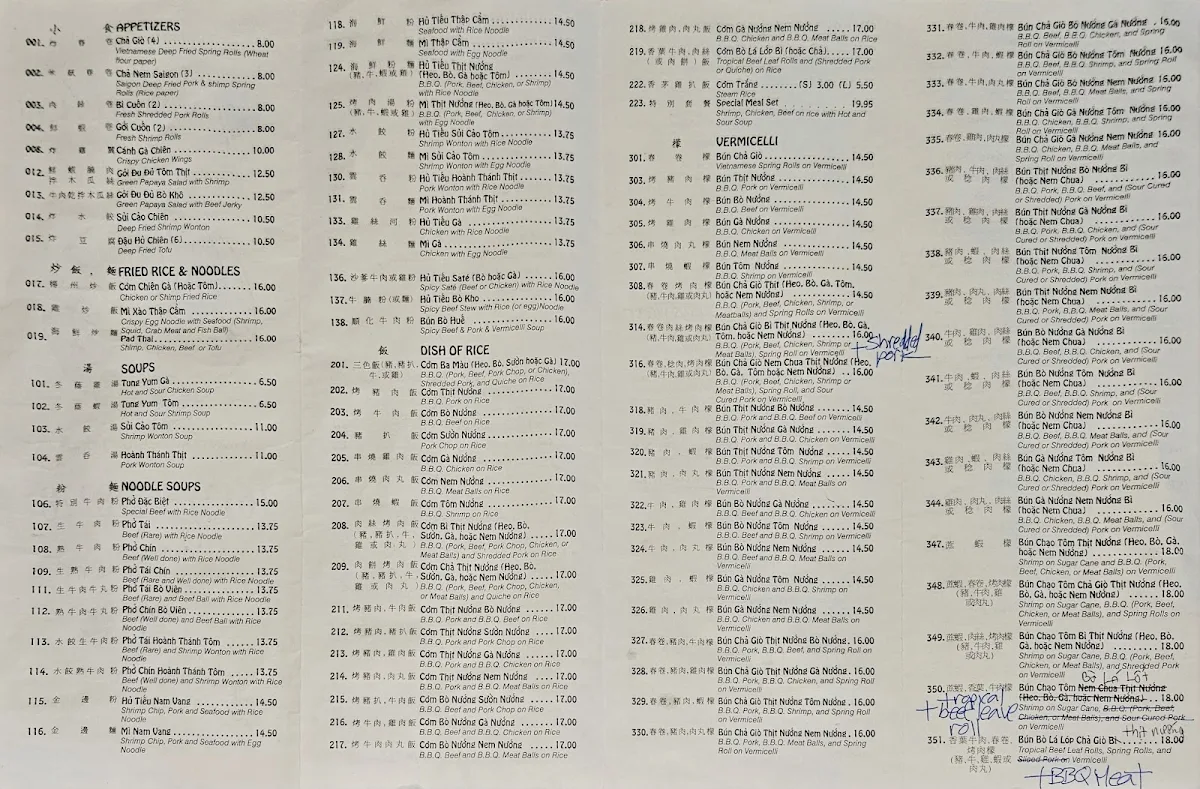 小 食 APPETIZERS
001. 炸 春 卷 Chả Giò (4) 8.00
Vietnamese Deep Fried Spring Rolls (Wheat
flour paper)
002. Chả Nem Saigon (3) 8.00
Saigon Deep Fried Pork & shimp Spring
Rolls (Rice paper)
003. 肉 絲 卷 Bì Cuốn (2) 8.00
Fresh Shredded Pork Rolls
004. 鮮 蝦 卷 Gỏi Cuốn (2) 8.00
Fresh Shrimp Rolls
008. 炸 雞 翼 Cánh Gà Chiên 10.00
Crispy Chicken Wings
012. Gỏi Đu Đủ Tôm Thịt 12.50
Green Papaya Salad with Shrimp
013. Gỏi Đu Đủ Bò Khô 12.50
Green Papaya Salad with Beef Jerky
014. 炸 水 餃 Sủi Cảo Chiên 10.50
Deep Fried Shrimp Wonton
015. 炸 豆 腐 Đậu Hủ Chiên (6) 10.50
Deep Fried Tofu
炒 飯 、 麵 FRIED RICE & NOODLES
017. 楊 州 炒 飯 Cơm Chiên Gà (Hoặc Tôm) 16.00
Chicken or Shrimp Fried Rice
018. 雜 炒 麵 Mì Xào Thập Cẩm 16.00
Crispy Egg Noodle with Seafood (Shrimp,
Squid, Crab Meat and Fish Ball)
019. 海 鮮 炒 麵 Pad Thai 16.00
Shimp, Chicken, Beef or Tofu
湯 SOUPS
101. 冬 蔭 雞 湯 Tung Yum Gà 6.50
Hot and Sour Chicken Soup
102. 冬 蔭 蝦 湯 Tung Yum Tôm 6.50
Hot and Sour Shrimp Soup
103. 水 餃 湯 Sủi Cảo Tôm 11.00
Shrimp Wonton Soup
104. 雲 吞 湯 Hoành Thánh Thịt 11.00
Pork Wonton Soup
粉 麵 NOODLE SOUPS
106. 特別牛肉粉 Phở Đặc Biệt 15.00
Special Beef with Rice Noodle
107. 生 牛 肉 粉 Phở Tái 13.75
Beef (Rare) with Rice Noodle
108. 熟 牛 肉 粉 Phở Chín 13.75
Beef (Well done) with Rice Noodle
109. 生熟牛肉粉 Phở Tái Chín 13.75
Beef (Rare and Well done) with Rice Noodle
111. 生牛牛丸粉 Phở Tái Bò Viên 13.75
Beef (Rare) and Beef Ball with Rice Noodle
112. 熟牛牛丸粉 Phở Chín Bò Viên 13.75
Beef (Well done) and Beef Ball with Rice
Noodle
113. 水餃生牛肉粉 Phở Tái Hoành Thánh Tôm 13.75
Beef (Rare) and Shrimp Wonton with Rice
Noodle
114. 水餃熟牛肉粉 Phở Chín Hoành Thánh Tôm 13.75
Beef (Well done) and Shrimp Wonton with Rice
Noodle
115. 金 邊 粉 Hủ Tiếu Nam Vang 14.50
Shrimp Chip, Pork and Seafood with Rice
Noodle
116. 金 邊 麵 Mì Nam Vang 14.50
Shrimp Chip, Pork and Seafood with Egg
Noodle
118. 海 鮮 粉 Hủ Tiếu Thập Cẩm 14.50
Seafood with Rice Noodle
119. 海 鮮 麵 Mì Thập Cẩm 14.50
Seafood with Egg Noodle
124. 海 鮮 粉 麵 Hủ Tiếu Thịt Nướng
(豬,牛,蝦或雞) (Heo, Bò, Gà hoặc Tôm) 14.50
B.B.Q. (Pork, Beef, Chicken, or Shrimp)
with Rice Noodle
125. 烤 肉 湯 粉 Mì Thịt Nướng (Heo, Bò, Gà hoặc Tôm) 14.50
(豬,牛,蝦或雞) B.B.Q. (Pork, Beef, Chicken, or Shrimp)
with Egg Noodle
127. 水 餃 粉 Hủ Tiếu Sủi Cảo Tôm 13.75
Shrimp Wonton with Rice Noodle
128. 水 餃 麵 Mì Sủi Cảo Tôm 13.75
Shrimp Wonton with Egg Noodle
130. 雲 吞 粉 Hủ Tiếu Hoành Thánh Thịt 13.75
Pork Wonton with Rice Noodle
131. 雲 吞 麵 Mì Hoành Thánh Thịt 13.75
Pork Wonton with Egg Noodle
133. 雞 絲 河 粉 Hủ Tiếu Gà 13.75
Chicken with Rice Noodle
134. 雞 絲 麵 Mì Gà 13.75
Chicken with Egg Noodle
136. 沙爹牛肉或雞粉 Hủ Tiếu Saté (Bò hoặc Gà) 16.00
Spicy Saté (Beef or Chicken) with Rice Noodle
137. 牛 腩 粉(或麵) Hủ Tiếu Bò Kho 16.00
Spicy Beef Stew with Rice (or egg) Noodle
138. 順 化 牛 肉 粉 Bún Bò Huế 16.00
Spicy Beef & Pork & Vermicelli Soup
飯 DISH OF RICE
201. 三色飯(豬,豬扒, Cơm Ba Màu (Heo, Bò, Sườn hoặc Gà) 17.00
牛,或雞) B.B.Q. (Pork, Beef, Pork Chop, or Chicken),
Shredded Pork, and Quiche on Rice
202. 烤 豬 肉 飯 Cơm Thịt Nướng 17.00
B.B.Q. Pork on Rice
203. 烤 牛 肉 飯 Cơm Bò Nướng 17.00
B.B.Q. Beef on Rice
204. 豬 扒 飯 Cơm Sườn Nướng 17.00
Pork Chop on Rice
205. 串 燒 雞 肉 飯 Cơm Gà Nướng 17.00
B.B.Q. Chicken on Rice
206. 串 燒 肉 丸 飯 Cơm Nem Nướng 17.00
B.B.Q. Meat Balls on Rice
207. 串 燒 蝦 飯 Cơm Tôm Nướng 17.00
B.B.Q. Shrimp on Rice
208. 肉 絲 烤 肉 飯 Cơm Bì Thịt Nướng (Heo, Bò,
(豬, 豬扒, 牛, Sườn, Gà, hoặc Nem Nướng) 17.00
雞 或 肉 丸) B.B.Q. (Pork, Beef, Pork Chop, Chicken, or
Meat Balls) and Shredded Pork on Rice
209. 肉 餅 烤 肉 飯 Cơm Chả Thịt Nướng (Heo, Bò,
(豬, 豬扒, 牛, Sườn, Gà, hoặc Nem Nướng) 17.00
雞 或 肉 丸) B.B.Q. (Pork, Beef, Pork Chop, Chicken,
or Meat Balls) and Quiche on Rice
211. 烤豬肉,牛肉飯 Cơm Thịt Nướng Bò Nướng 17.00
B.B.Q. Pork and B.B.Q. Beef on Rice
212. 烤豬肉,豬扒飯 Cơm Thịt Nướng Sườn Nướng 17.00
B.B.Q. Pork and Pork Chop on Rice
213. 烤豬肉,雞肉飯 Cơm Thịt Nướng Gà Nướng 17.00
B.B.Q. Pork and B.B.Q. Chicken on Rice
214. 烤豬肉,肉丸飯 Cơm Thịt Nướng Nem Nướng 17.00
B.B.Q. Pork and Meat Balls on Rice
215. 烤豬扒,牛肉飯 Cơm Bò Nướng Sườn Nướng 17.00
B.B.Q. Beef and Pork Chop on Rice
216. 烤牛肉,雞肉飯 Cơm Bò Nướng Gà Nướng 17.00
B.B.Q. Beef and B.B.Q. Chicken on Rice
217. 烤牛肉肉丸飯 Cơm Bò Nướng Nem Nướng 17.00
B.B.Q. Beef and B.B.Q. Meat Balls on Rice
218. 烤雞肉,肉丸飯 Cơm Gà Nướng Nem Nướng 17.00
B.B.Q. Chicken and B.B.Q. Meat Balls on Rice
219. 香葉牛肉,肉絲 Cơm Bò Lá Lốp Bì (hoặc Chả) 17.00
(或肉餅)飯 Tropical Beef Leaf Rolls and (Shredded Pork
or Quiche) on Rice
222. 香茅雞扒飯 Cơm Trắng (S) 3.00 (L) 5.50
Steam Rice
223. 特 別 套 餐 Special Meal Set 19.95
Shrimp, Chicken, Beef on rice with Hot and
Sour Soup
檬 VERMICELLI
301. 春 卷 檬 Bún Chả Giò 14.50
Vietnamese Spring Rolls on Vermicelli
303. 烤 豬 肉 檬 Bún Thịt Nướng 14.50
B.B.Q. Pork on Vermicelli
304. 烤 牛 肉 檬 Bún Bò Nướng 14.50
B.B.Q. Beef on Vermicelli
305. 烤 雞 肉 檬 Bún Gà Nướng 14.50
B.B.Q. Chicken on Vermicelli
306. 串 燒 肉 丸 檬 Bún Nem Nướng 14.50
B.B.Q. Meat Balls on Vermicelli
307. 串 燒 蝦 檬 Bún Tôm Nướng 14.50
B.B.Q. Shrimp on Vermicelli
308. 春 卷 烤 肉 檬 Bún Chả Giò Thịt (Heo, Bò, Gà, Tôm,
(豬,牛肉,雞或肉丸) hoặc Nem Nướng) 14.50
B.B.Q. (Pork, Beef, Chicken, Shrimp, or
Meatballs) and Spring Rolls on Vermicelli
314. 春卷肉絲烤肉檬 Bún Chả Giò Bì Thịt Nướng (Heo, Bò, Gà,
(豬,牛肉,雞或肉丸) Tôm, hoặc Nem Nướng) 16.00
B.B.Q. (Pork, Beef, Chicken, Shrimp or
Meat Balls), Spring Roll on Vermicelli
+ Shredded pork
316. 春卷,稔肉,烤肉檬 Bún Chả Giò Nem Chua Thịt Nướng (Heo,
(豬,牛肉,雞或肉丸) Bò, Gà, Tôm hoặc Nem Nướng) 16.00
B.B.Q. (Pork, Beef, Chicken, Shrimp or
Meat Balls), Spring Roll, and Sour
Cured Pork on Vermicelli
318. 豬 肉 , 牛 肉 檬 Bún Thịt Nướng Bò Nướng 14.50
B.B.Q. Pork and B.B.Q. Beef on Vermicelli
319. 豬 肉 , 雞 肉 檬 Bún Thịt Nướng Gà Nướng 14.50
B.B.Q. Pork and B.B.Q. Chicken on Vermicelli
320. 豬 肉 , 蝦 檬 Bún Thịt Nướng Tôm Nướng 14.50
B.B.Q. Pork and B.B.Q. Shrimp on Vermicelli
321. 豬肉,肉丸檬 Bún Thịt Nướng Nem Nướng 14.50
B.B.Q. Pork and B.B.Q. Meat Balls on
Vermicelli
322. 牛肉,雞肉檬 Bún Bò Nướng Gà Nướng 14.50
B.B.Q. Beef and B.B.Q. Chicken on Vermicelli
323. 牛 肉 , 蝦 檬 Bún Bò Nướng Tôm Nướng 14.50
B.B.Q. Beef and B.B.Q. Shrimp on Vermicelli
324. 牛肉,肉丸檬 Bún Bò Nướng Nem Nướng 14.50
B.B.Q. Beef and B.B.Q. Meat Balls on
Vermicelli
325. 雞 肉 , 蝦 檬 Bún Gà Nướng Tôm Nướng 14.50
B.B.Q. Chicken and B.B.Q. Shrimp on
Vermicelli
326. 雞肉,肉丸檬 Bún Gà Nướng Nem Nướng 14.50
B.B.Q. Chicken and B.B.Q. Meat Balls on
Vermicelli
327. 春卷,豬肉,牛肉檬 Bún Chả Giò Thịt Nướng Bò Nướng 16.00
B.B.Q. Pork, B.B.Q. Beef, and Spring Roll
on Vermicelli
328. 春卷,豬肉,雞肉檬 Bún Chả Giò Thịt Nướng Gà Nướng 16.00
B.B.Q. Pork, B.B.Q. Chicken, and Spring Roll
on Vermicelli
329. 春卷,豬肉,蝦檬 Bún Chả Giò Thịt Nướng Tôm Nướng 16.00
B.B.Q. Pork, B.B.Q. Shrimp, and Spring Roll
on Vermicelli
330. 春卷,豬肉,肉丸檬 Bún Chả Giò Thịt Nướng Nem Nướng 16.00
B.B.Q. Pork, B.B.Q. Meat Balls, and Spring
Roll on Vermicelli
331. 春卷,牛肉,雞肉檬 Bún Chả Giò Bò Nướng Gà Nướng 16.00
B.B.Q. Beef, B.B.Q. Chicken, and Spring
Roll on Vermicelli
332. 春卷,牛肉,蝦檬 Bún Chả Giò Bò Nướng Tôm Nướng 16.00
B.B.Q. Beef, B.B.Q. Shrimp, and Spring Roll
on Vermicelli
333. 春卷,牛肉,肉丸檬 Bún Chả Giò Bò Nướng Nem Nướng 16.00
B.B.Q. Beef, B.B.Q. Meat Balls, and Spring
Roll on Vermicelli
334. 春卷,雞肉,蝦檬 Bún Chả Giò Gà Nướng Tôm Nướng 16.00
B.B.Q. Chicken, B.B.Q. Shrimp, and Spring
Roll on Vermicelli
335. 春卷,雞肉,肉丸檬 Bún Chả Giò Gà Nướng Nem Nướng 16.00
B.B.Q. Chicken, B.B.Q. Meat Balls, and
Spring Roll on Vermicelli
336. 豬肉,牛肉,肉絲 Bún Thịt Nướng Bò Nướng Bì
或 稔 肉 檬 (hoặc Nem Chua) 16.00
B.B.Q. Pork, B.B.Q. Beef, and (Sour Cured
or Shredded) Pork on Vermicelli
337. 豬肉,雞肉,肉絲 Bún Thịt Nướng Gà Nướng Bì
或 稔 肉 檬 (hoặc Nem Chua) 16.00
B.B.Q. Pork, B.B.Q. Chicken, and (Sour
Cured or Shredded) Pork on Vermicelli
338. 豬肉,蝦,肉絲 Bún Thịt Nướng Tôm Nướng Bì
或 稔 肉 檬 (hoặc Nem Chua) 16.00
B.B.Q. Pork, B.B.Q. Shrimp, and (Sour
Cured or Shredded) Pork on Vermicelli
339. 豬肉,肉丸,肉絲 Bún Thịt Nướng Nem Nướng Bì
或 稔 肉 檬 (hoặc Nem Chua) 16.00
B.B.Q. Pork, B.B.Q. Meat Balls, and (Sour
Cured or Shredded) Pork on Vermicelli
340. 牛肉,雞肉,肉絲 Bún Bò Nướng Gà Nướng Bì
或 稔 肉 檬 (hoặc Nem Chua) 16.00
B.B.Q. Beef, B.B.Q. Chicken, and (Sour
Cured or Shredded) Pork on Vermicelli
341. 牛肉,蝦,肉絲 Bún Bò Nướng Tôm Nướng Bì
或 稔 肉 檬 (hoặc Nem Chua) 16.00
B.B.Q. Beef, B.B.Q. Shrimp, and (Sour
Cured or Shredded) Pork on Vermicelli
342. 牛肉,肉丸,肉絲 Bún Bò Nướng Nem Nướng Bì
或 稔 肉 檬 (hoặc Nem Chua) 16.00
B.B.Q. Beef, B.B.Q. Meat Balls, and (Sour
Cured or Shredded) Pork on Vermicelli
343. 雞肉,蝦,肉絲 Bún Gà Nướng Tôm Nướng Bì
或 稔 肉 檬 (hoặc Nem Chua) 16.00
B.B.Q. Chicken, B.B.Q. Shrimp, and (Sour
Cured or Shredded) Pork on Vermicelli
344. 雞肉,肉丸,肉絲 Bún Gà Nướng Nem Nướng Bì
或 稔 肉 檬 (hoặc Nem Chua) 16.00
B.B.Q. Chicken, B.B.Q. Meat Balls, and (Sour
Cured or Shredded) Pork on Vermicelli
347. 蔗 蝦 檬 Bún Chạo Tôm Thịt Nướng (Heo, Bò, Gà,
hoặc Nem Nướng) 18.00
Shrimp on Sugar Cane and B.B.Q. (Pork,
Beef, Chicken, or Meat Balls) on Vermicelli
348. 蔗蝦,春卷,烤肉檬 Bún Chạo Tôm Chả Giò Thịt Nướng (Heo,
(豬,牛肉,雞 Bò, Gà, hoặc Nem Nướng) 18.00
或肉丸) Shrimp on Sugar Cane, B.B.Q. (Pork, Beef,
Chicken, or Meat Balls), and Spring Rolls on
Vermicelli
349. 蔗蝦,肉絲,烤肉檬 Bún Chạo Tôm Bì Thịt Nướng (Heo, Bò,
(豬,牛肉,雞 Gà, hoặc Nem Nướng) 18.00
或肉丸) Shrimp on Sugar Cane, B.B.Q. (Pork, Beef,
Chicken, or Meat Balls), and Shredded Pork
on Vermicelli
Bò Lá Lốt
350. 蔗蝦,香葉,牛肉檬 Bún Chạo Tôm Nem Chua Thịt Nướng
(Heo, Bò, Gà, hoặc Nem Nướng) 18.00
Shrimp on Sugar Cane, B.B.Q. (Pork, Beef,
Chicken, or Meat Balls), and Sour Cured Pork
on Vermicelli
+ tropical beef leave roll
thịt nướng
351. 香葉牛肉,春卷, Bún Bò Lá Lốp Chả Giò Bì 18.00
烤肉檬 Tropical Beef Leaf Rolls, Spring Rolls, and
(豬,牛,雞,蝦或 Sliced Pork on Vermicelli
肉丸)
+BBQ Meat